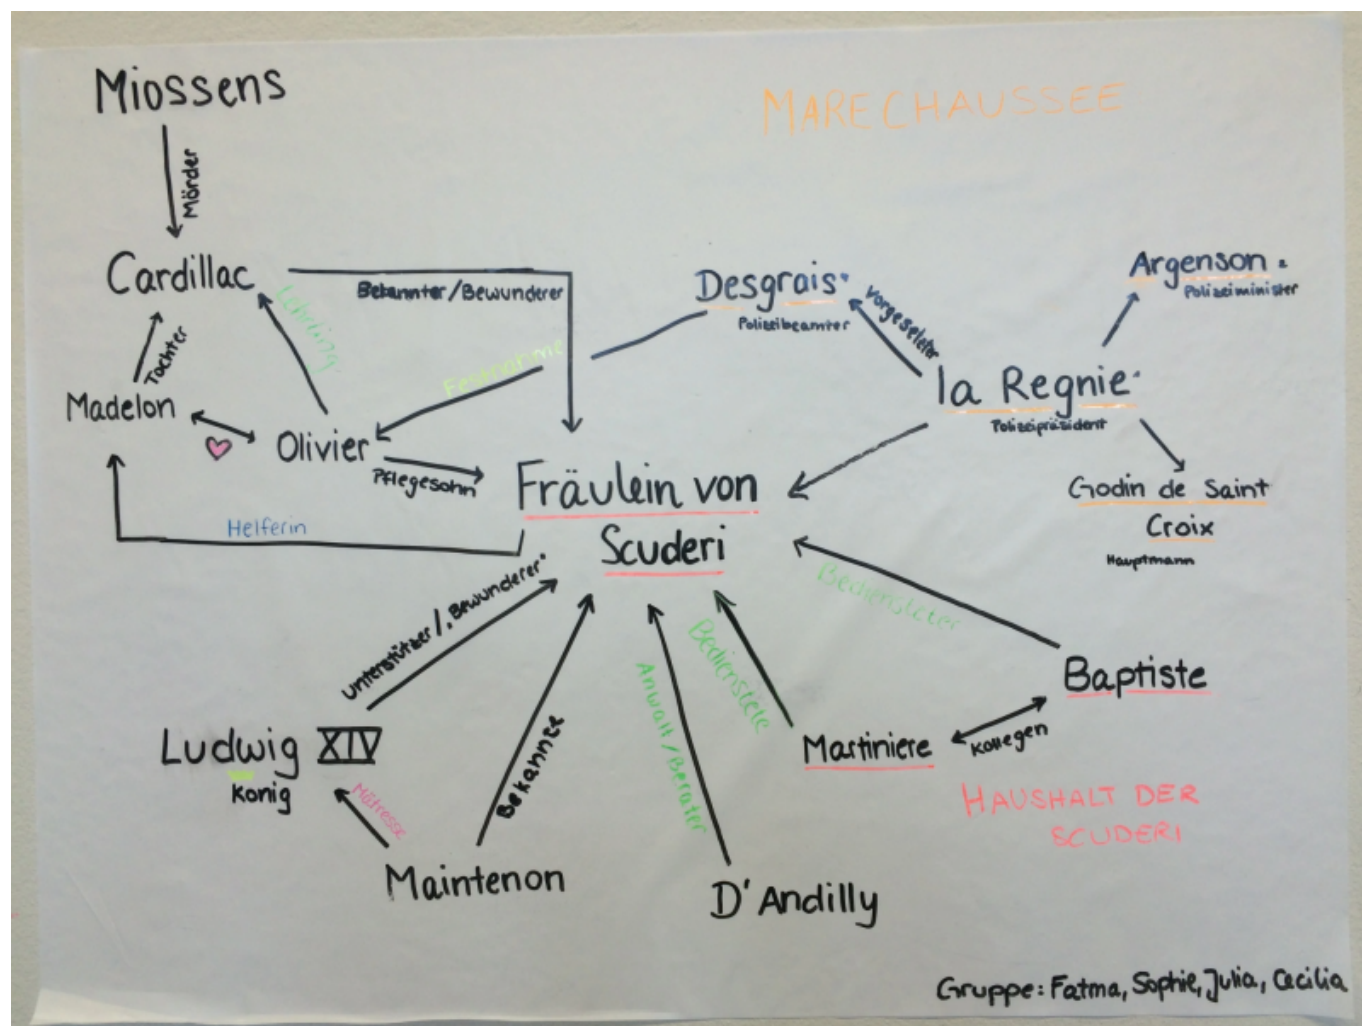 Miossens
MARECHAUSSEE
Mörder
Cardillac
Bekannter/Bewunderer
Desgrais
Polizeibeamter
Vorgesetzter
Argenson
Polizeiminister
Lehrling
Tochter
Festnahme
la Regnie
Polizeipräsident
Madelon
Olivier
Pflegesohn
Fräulein von
Scuderi
Godin de Saint
Croix
Hauptmann
Helferin
Unterstützer/Bewunderer
Bediensteter
Bedienstete
Anwalt/Berater
Baptiste
Ludwig XIV
König
Mätresse
Bekannte
Martiniere
Kollegen
HAUSHALT DER
SCUDERI
Maintenon
D'Andilly
Gruppe: Fatma, Sophie, Julia, Cecilia